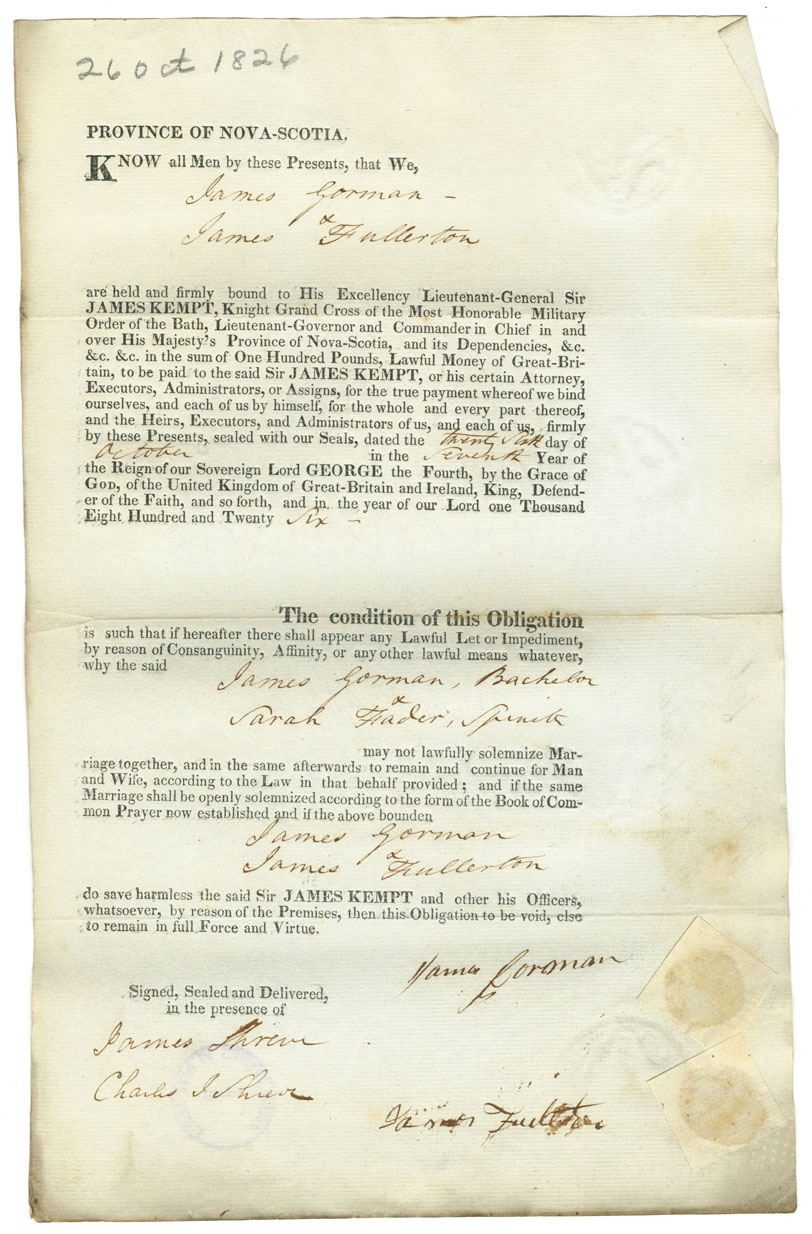 26 Oct 1826
PROVINCE OF NOVA-SCOTIA.
KNOW all Men by these Presents, that We,
James Gorman -
&
James Fullerton
are held and firmly bound to His Excellency Lieutenant-General Sir
JAMES KEMPT, Knight Grand Cross of the Most Honorable Military
Order of the Bath, Lieutenant-Governor and Commander in Chief in and
over His Majesty's Province of Nova-Scotia, and its Dependencies, &c.
&c. &c. in the sum of One Hundred Pounds, Lawful Money of Great-Bri-
tain, to be paid to the said Sir JAMES KEMPT, or his certain Attorney,
Executors, Administrators, or Assigns, for the true payment whereof we bind
ourselves, and each of us by himself, for the whole and every part thereof,
and the Heirs, Executors, and Administrators of us, and each of us, firmly
by these Presents, sealed with our Seals, dated the twenty sixth day of
October in the Seventh Year of
the Reign of our Sovereign Lord GEORGE the Fourth, by the Grace of
GOD, of the United Kingdom of Great-Britain and Ireland, King, Defend-
er of the Faith, and so forth, and in the year of our Lord one Thousand
Eight Hundred and Twenty Six -
The condition of this Obligation
is such that if hereafter there shall appear any Lawful Let or Impediment,
by reason of Consanguinity, Affinity, or any other lawful means whatever,
why the said
James Gorman, Bachelor
&
Sarah Fader, Spinstr
may not lawfully solemnize Mar-
riage together, and in the same afterwards to remain and continue for Man
and Wife, according to the Law in that behalf provided; and if the same
Marriage shall be openly solemnized according to the form of the Book of Com-
mon Prayer now established and if the above bounden
James Gorman
&
James Fullerton
do save harmless the said Sir JAMES KEMPT and other his Officers,
whatsoever, by reason of the Premises, then this Obligation to be void, else
to remain in full Force and Virtue.
James Gorman
Signed, Sealed and Delivered,
in the presence of
James Shreve
Charles J Shreve
James Fullerton